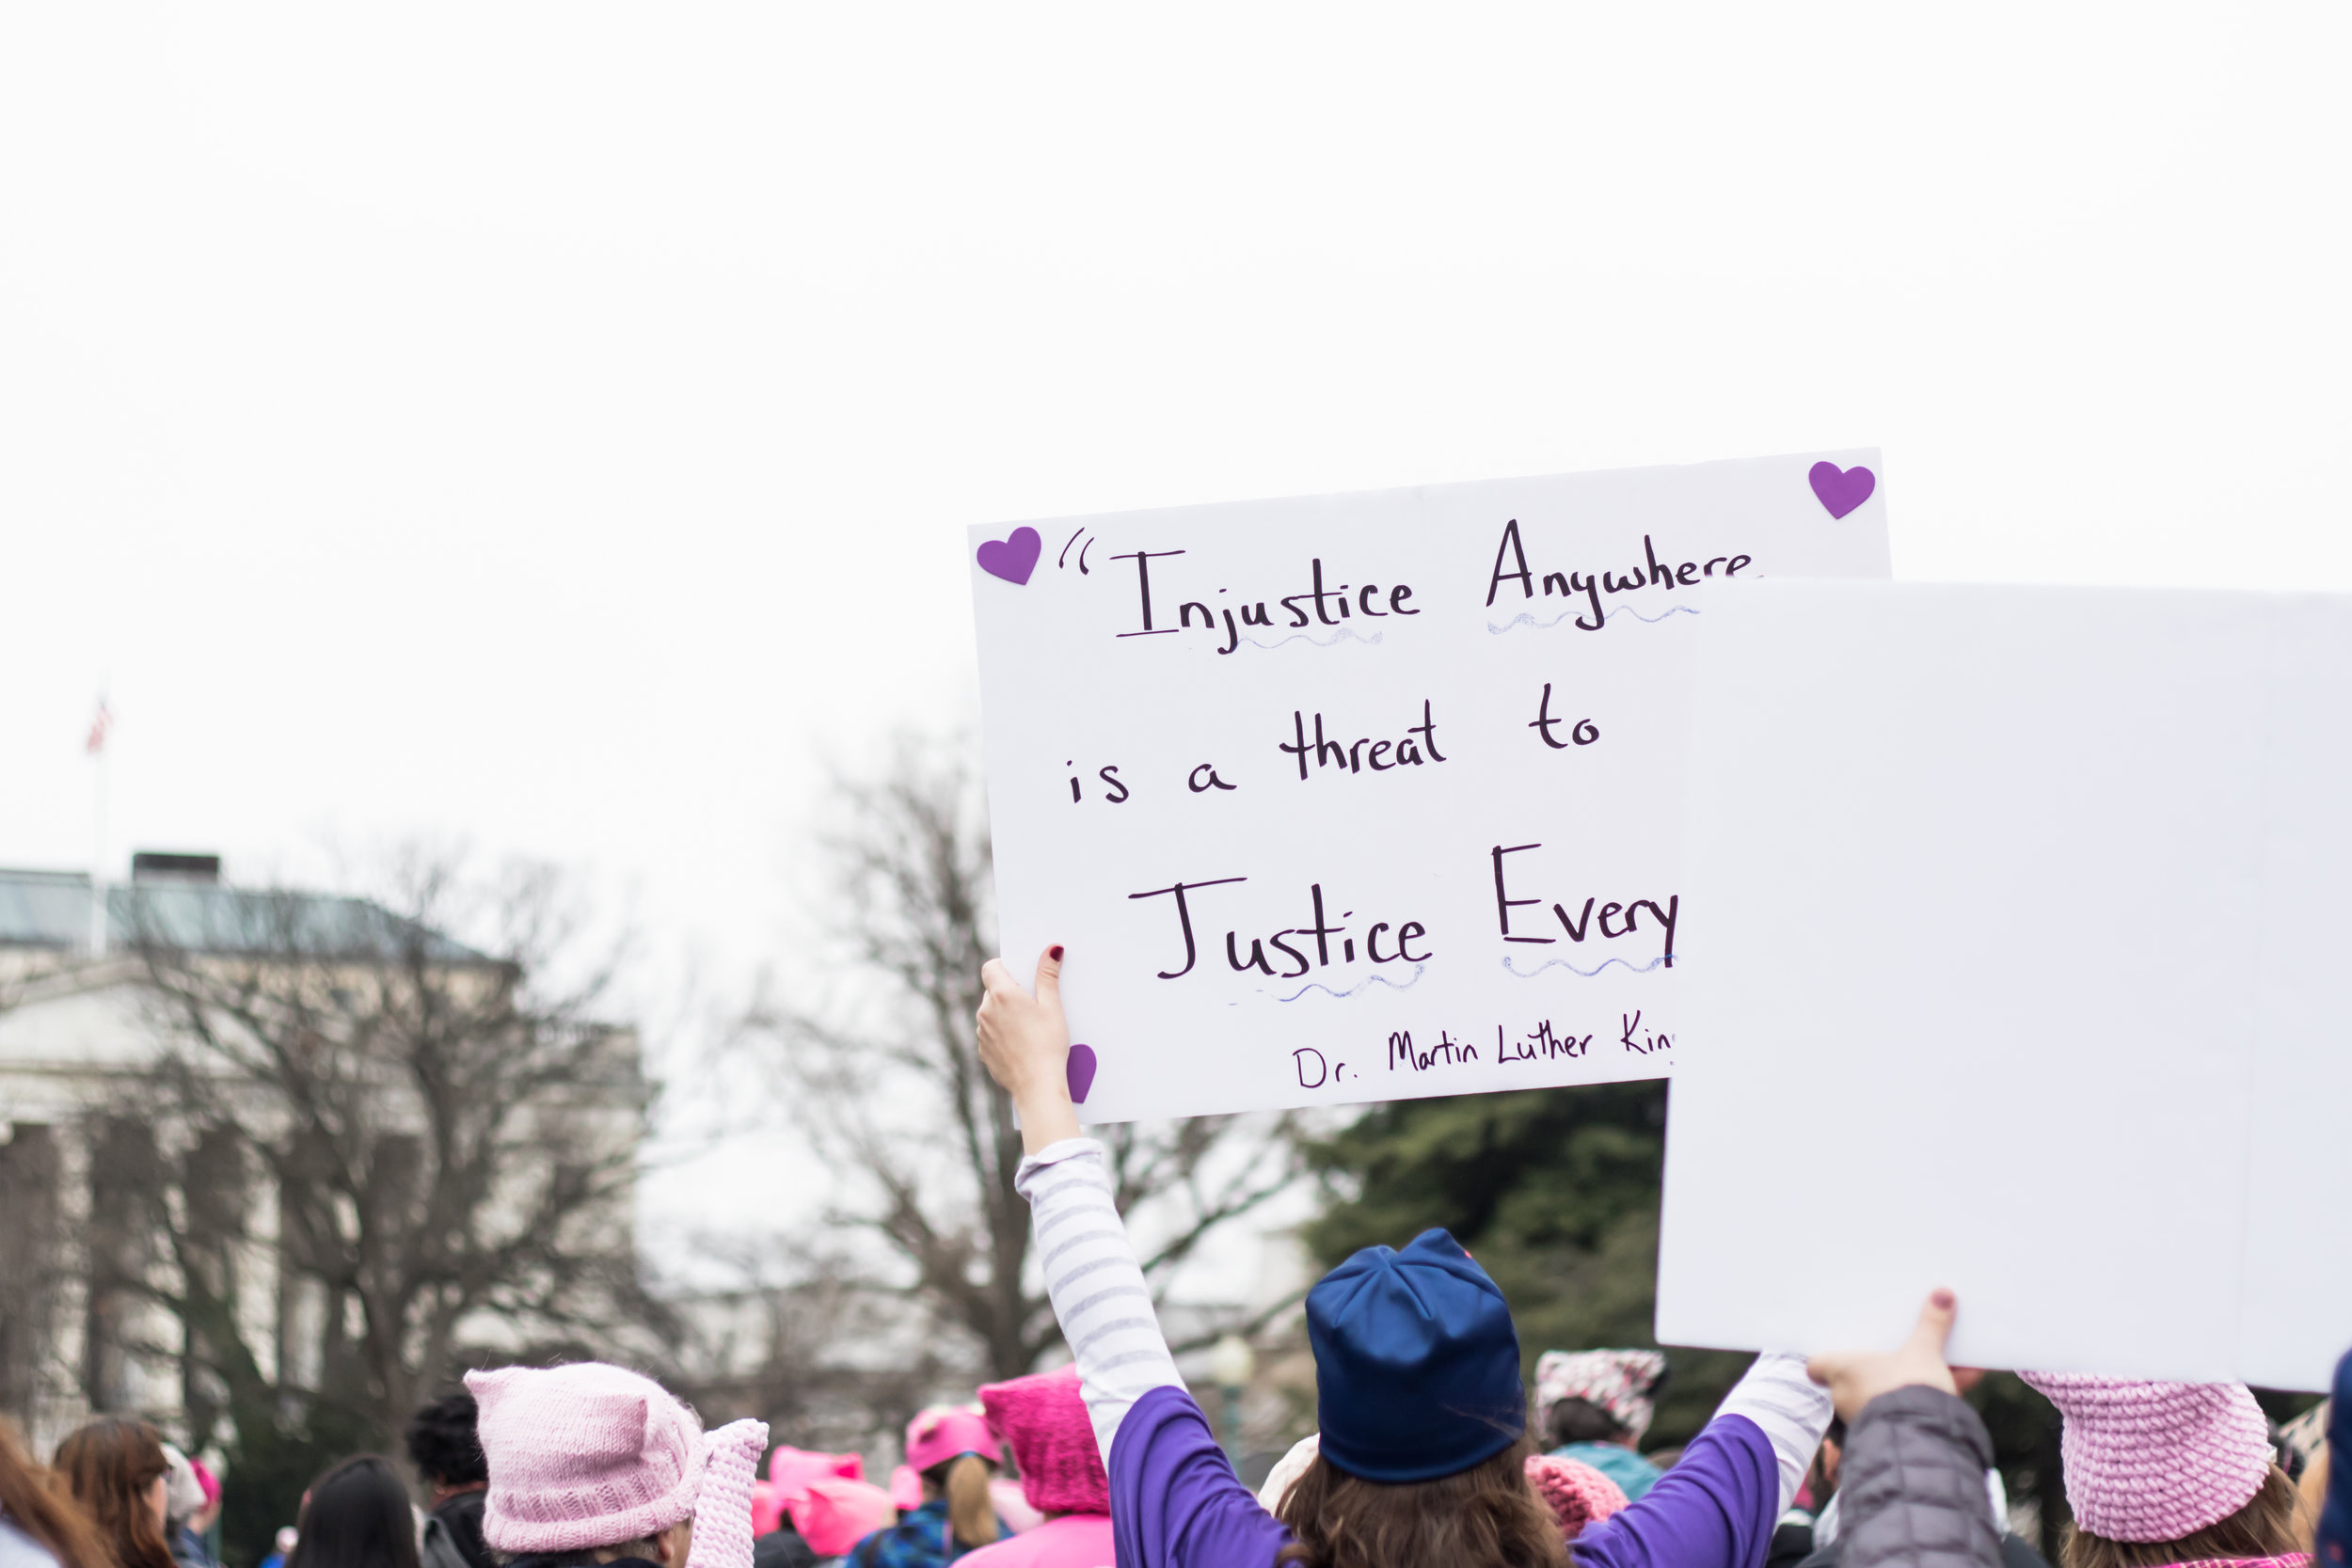 “Injustice Anywhere
is a threat to
Justice Every
Dr. Martin Luther Kin